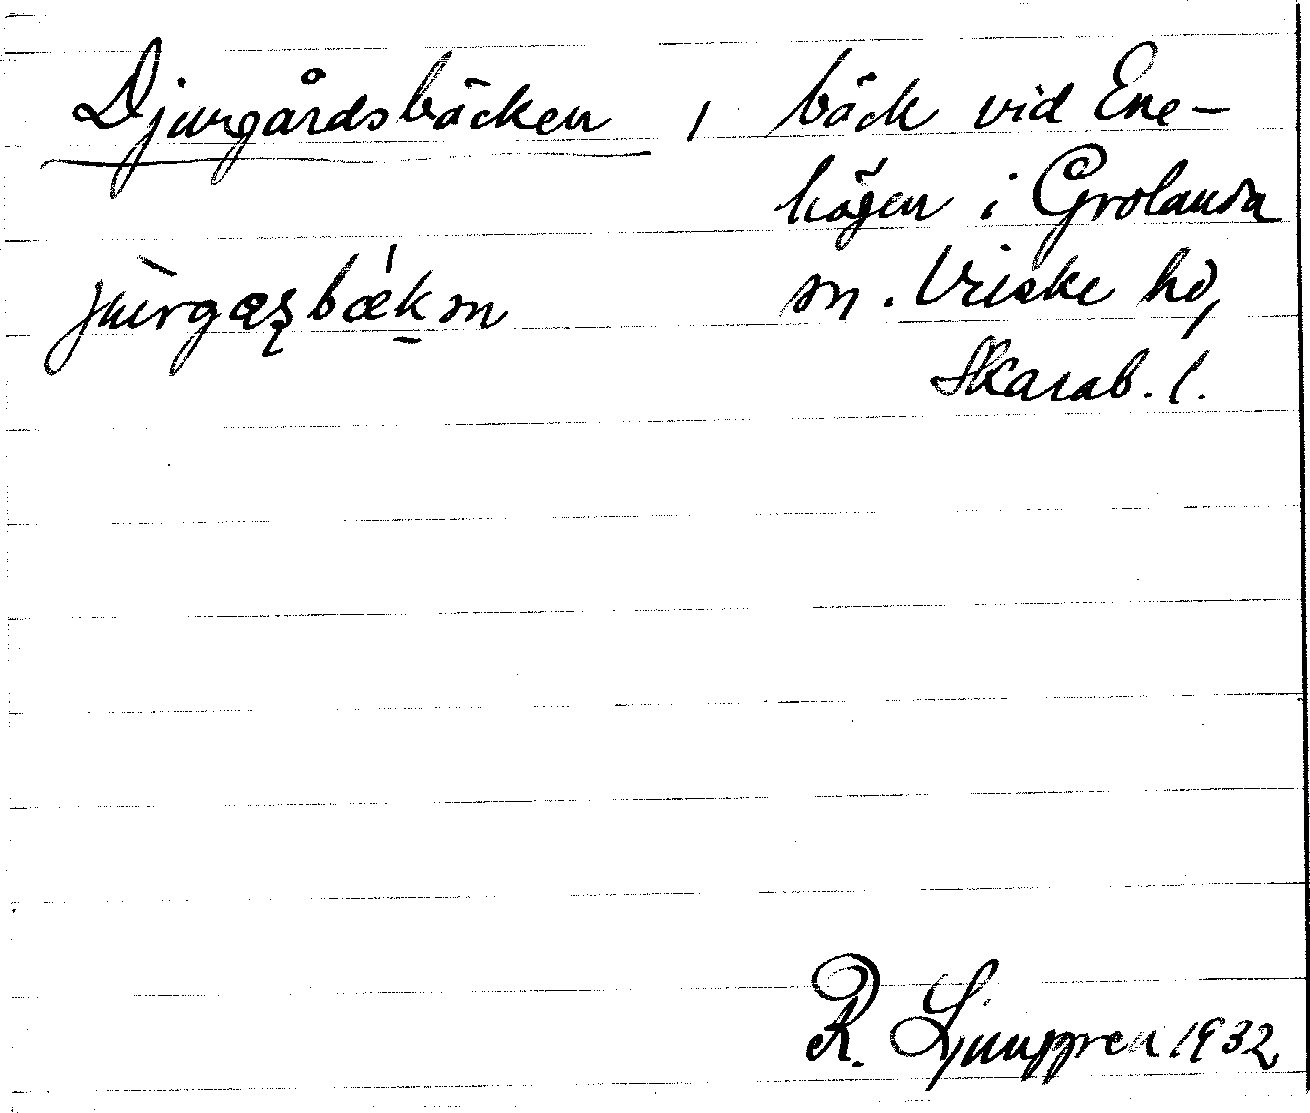 Djurgårdsbäcken, bäck vid Ene-
högen i Grolanda
sn. Vilske hd,
Skarab. l.
R. Ljunggren 1932